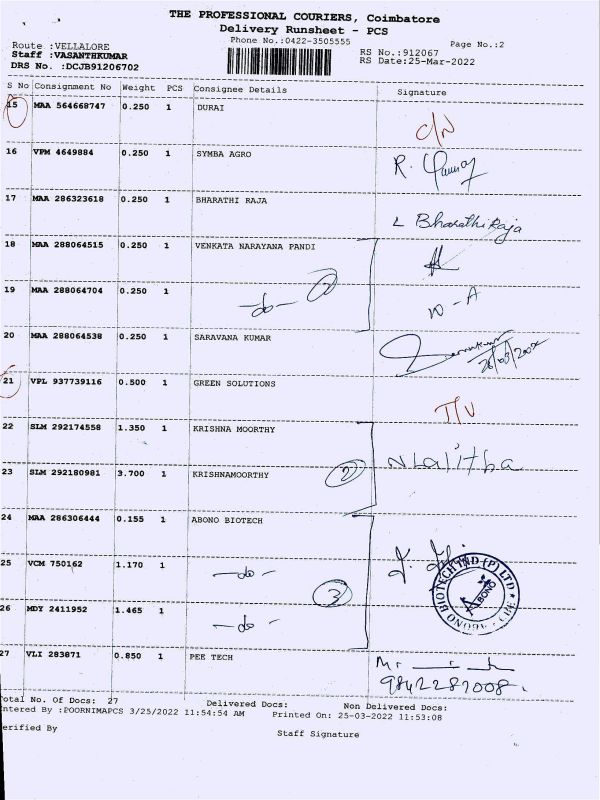 THE PROFESSIONAL COURIERS, Coimbatore
Delivery Runsheet - PCS
Phone No.:0422-3505555
Page No.:2
Route :VELLALORE
Staff :VASANTHKUMAR
DRS No. :DCJB91206702
RS No.:912067
RS Date:25-Mar-2022
S No Consignment No Weight PCS Consignee Details Signature
15 MAA 564668747 0.250 1 DURAI C/N
16 VPM 4649884 0.250 1 SYMBA AGRO R.
17 MAA 286323618 0.250 1 BHARATHI RAJA L BharathiRaja
18 MAA 288064515 0.250 1 VENKATA NARAYANA PANDI
19 MAA 288064704 0.250 1 -do- 2 N-A
20 MAA 288064538 0.250 1 SARAVANA KUMAR
21 VPL 937739116 0.500 1 GREEN SOLUTIONS T/V
22 SLM 292174558 1.350 1 KRISHNA MOORTHY NLalitha
23 SLM 292180981 3.700 1 KRISHNAMOORTHY 2
24 MAA 286306444 0.155 1 ABONO BIOTECH
25 VCM 750162 1.170 1 -do- 3
ABONO BIOTECH IND (P) LTD CBE
ABONO
26 MDY 2411952 1.465 1 -do-
27 VLI 283871 0.850 1 PEE TECH Mr
9842287008.
otal No. Of Docs: 27 Delivered Docs: Non Delivered Docs:
ntered By :POORNIMAPCS 3/25/2022 11:54:54 AM Printed On: 25-03-2022 11:53:08
erified By Staff Signature